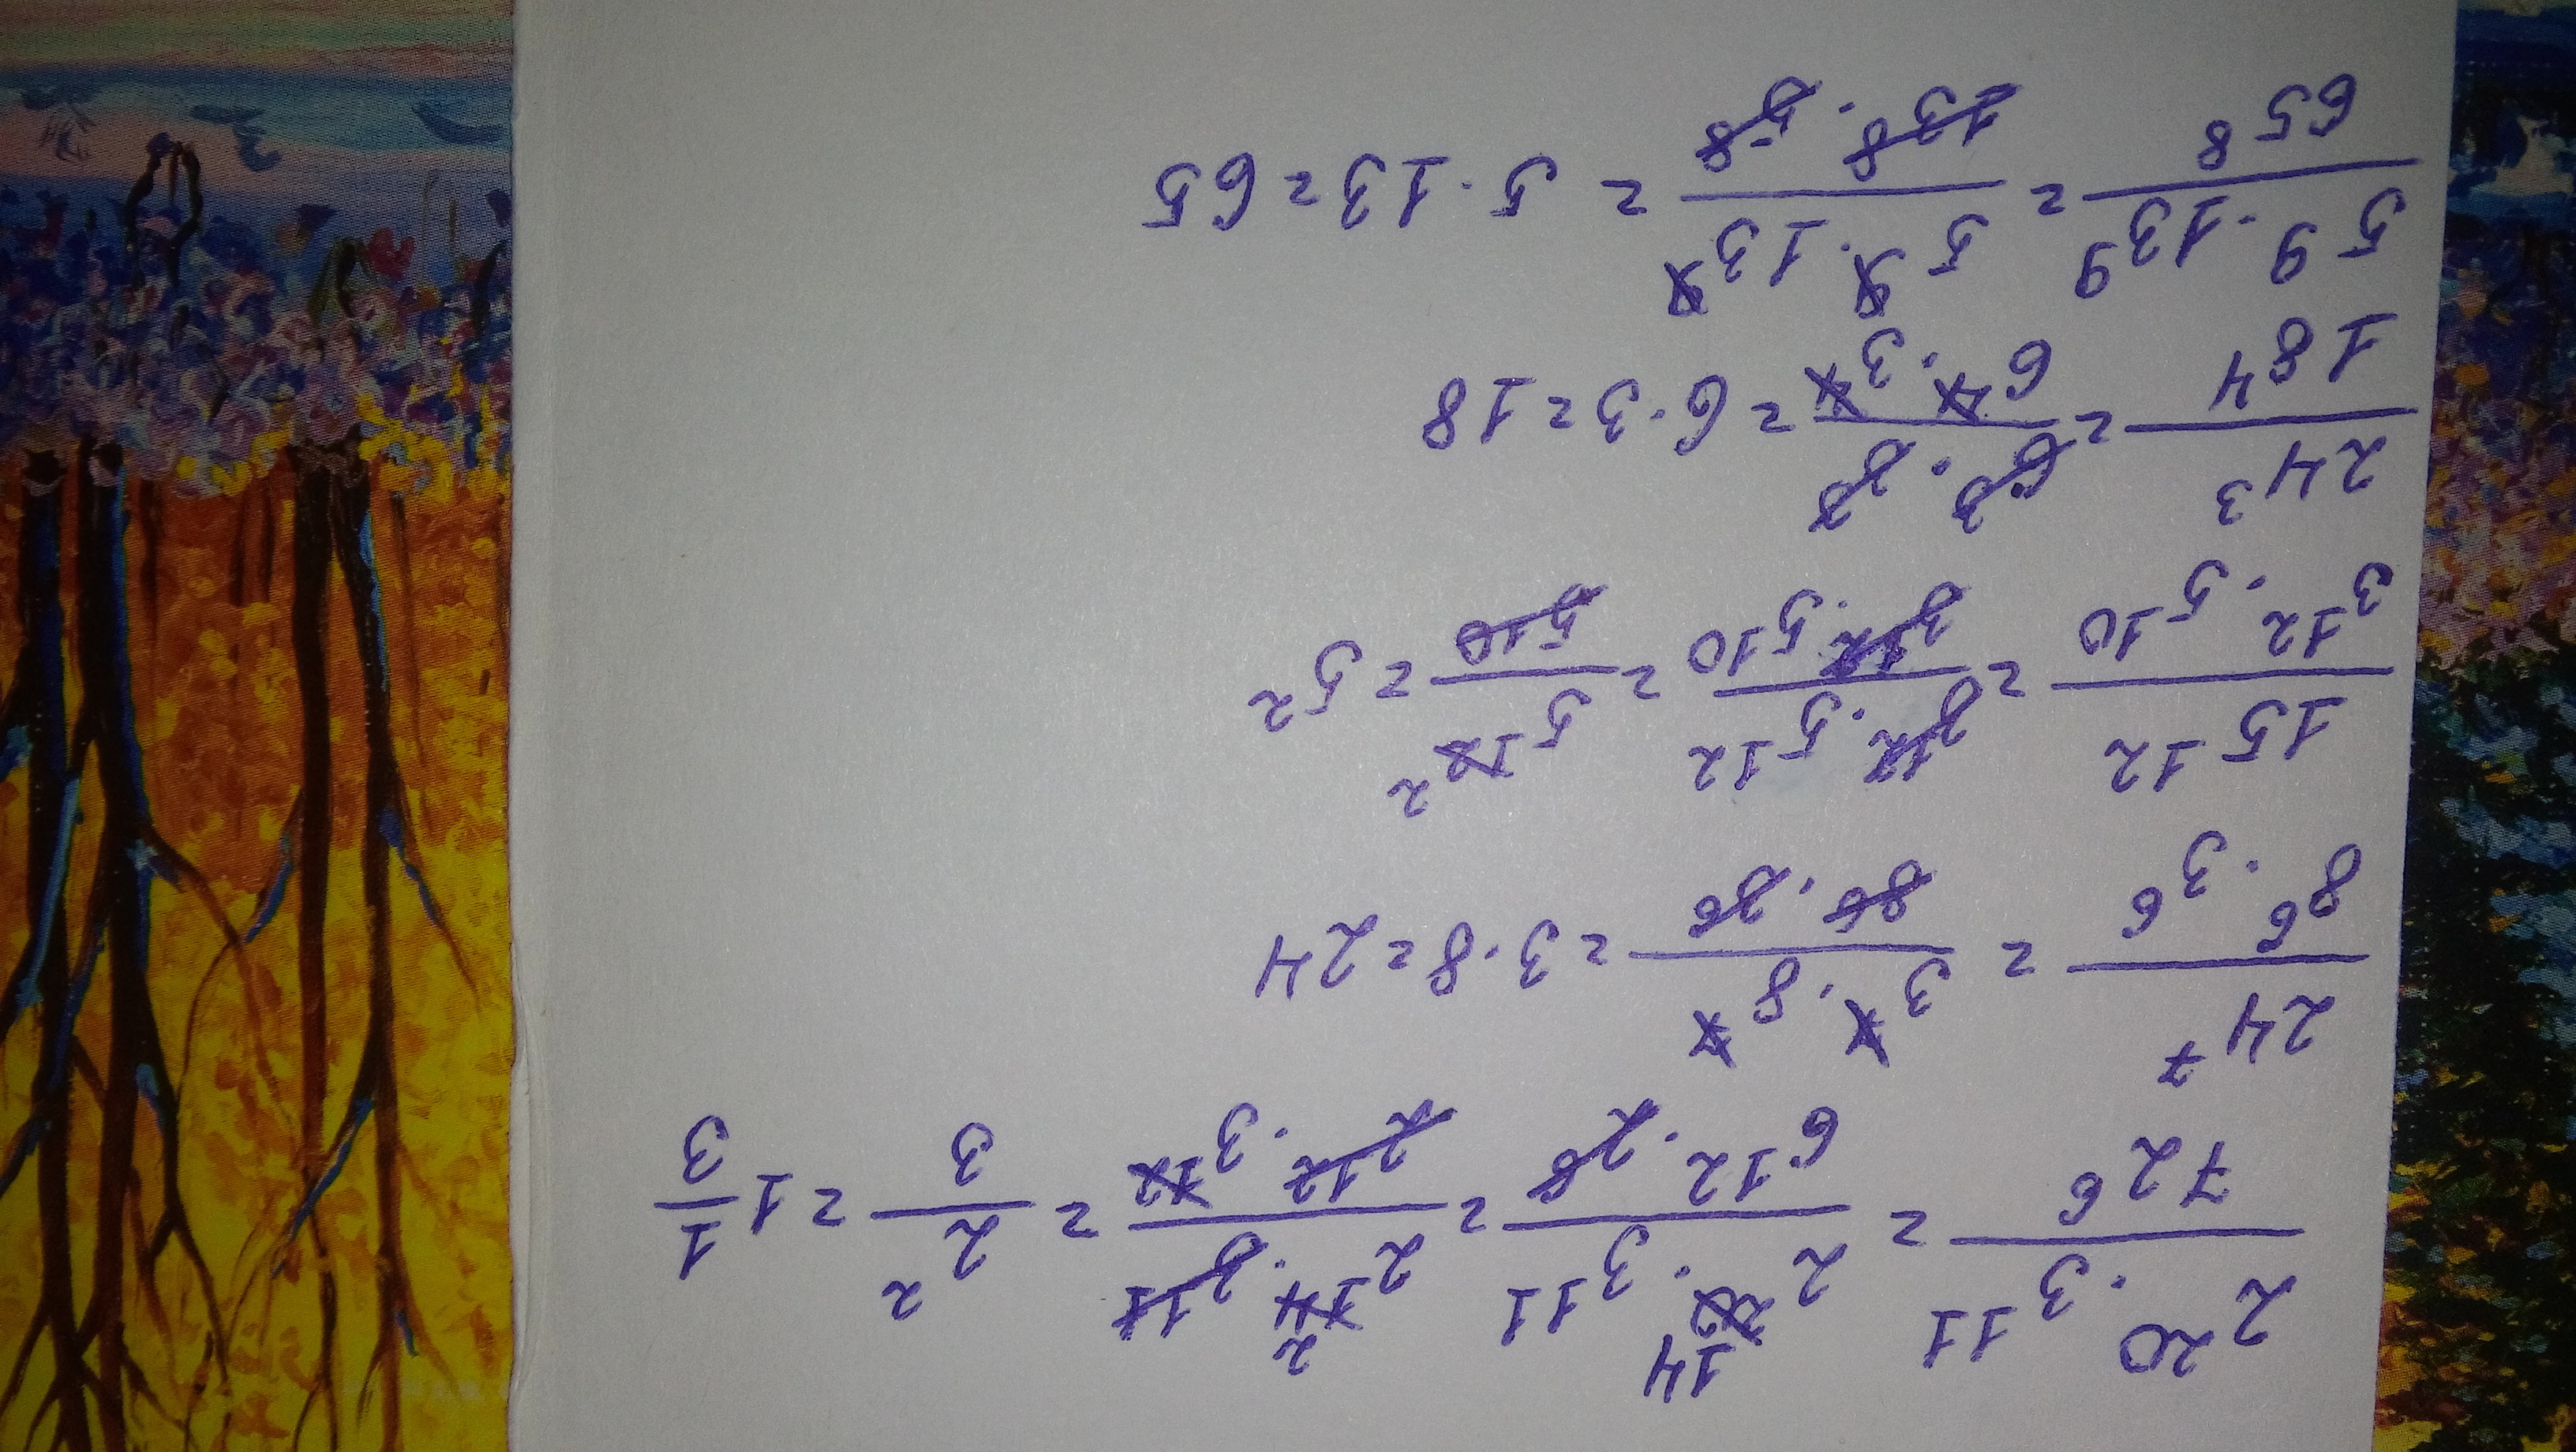 2²⁰·3¹¹/72⁶ = 2²⁰ ¹⁴·3¹¹/6¹²·2⁶ = 2¹⁴ ²·3¹¹/2¹²·3¹² = 2²/3 = 1 1/3
24⁷/8⁶·3⁶ = 3⁷·8⁷/8⁶·3⁶ = 3·8 = 24
15¹²/3¹²·5¹⁰ = 3¹²·5¹²/3¹²·5¹⁰ = 5¹² ²/5¹⁰ = 5²
24³/18⁴ = 6³·3³/6⁴·3⁴ = 6·3 = 18
5⁹·13⁹/65⁸ = 5⁹·13⁹/13⁸·5⁸ = 5·13 = 65